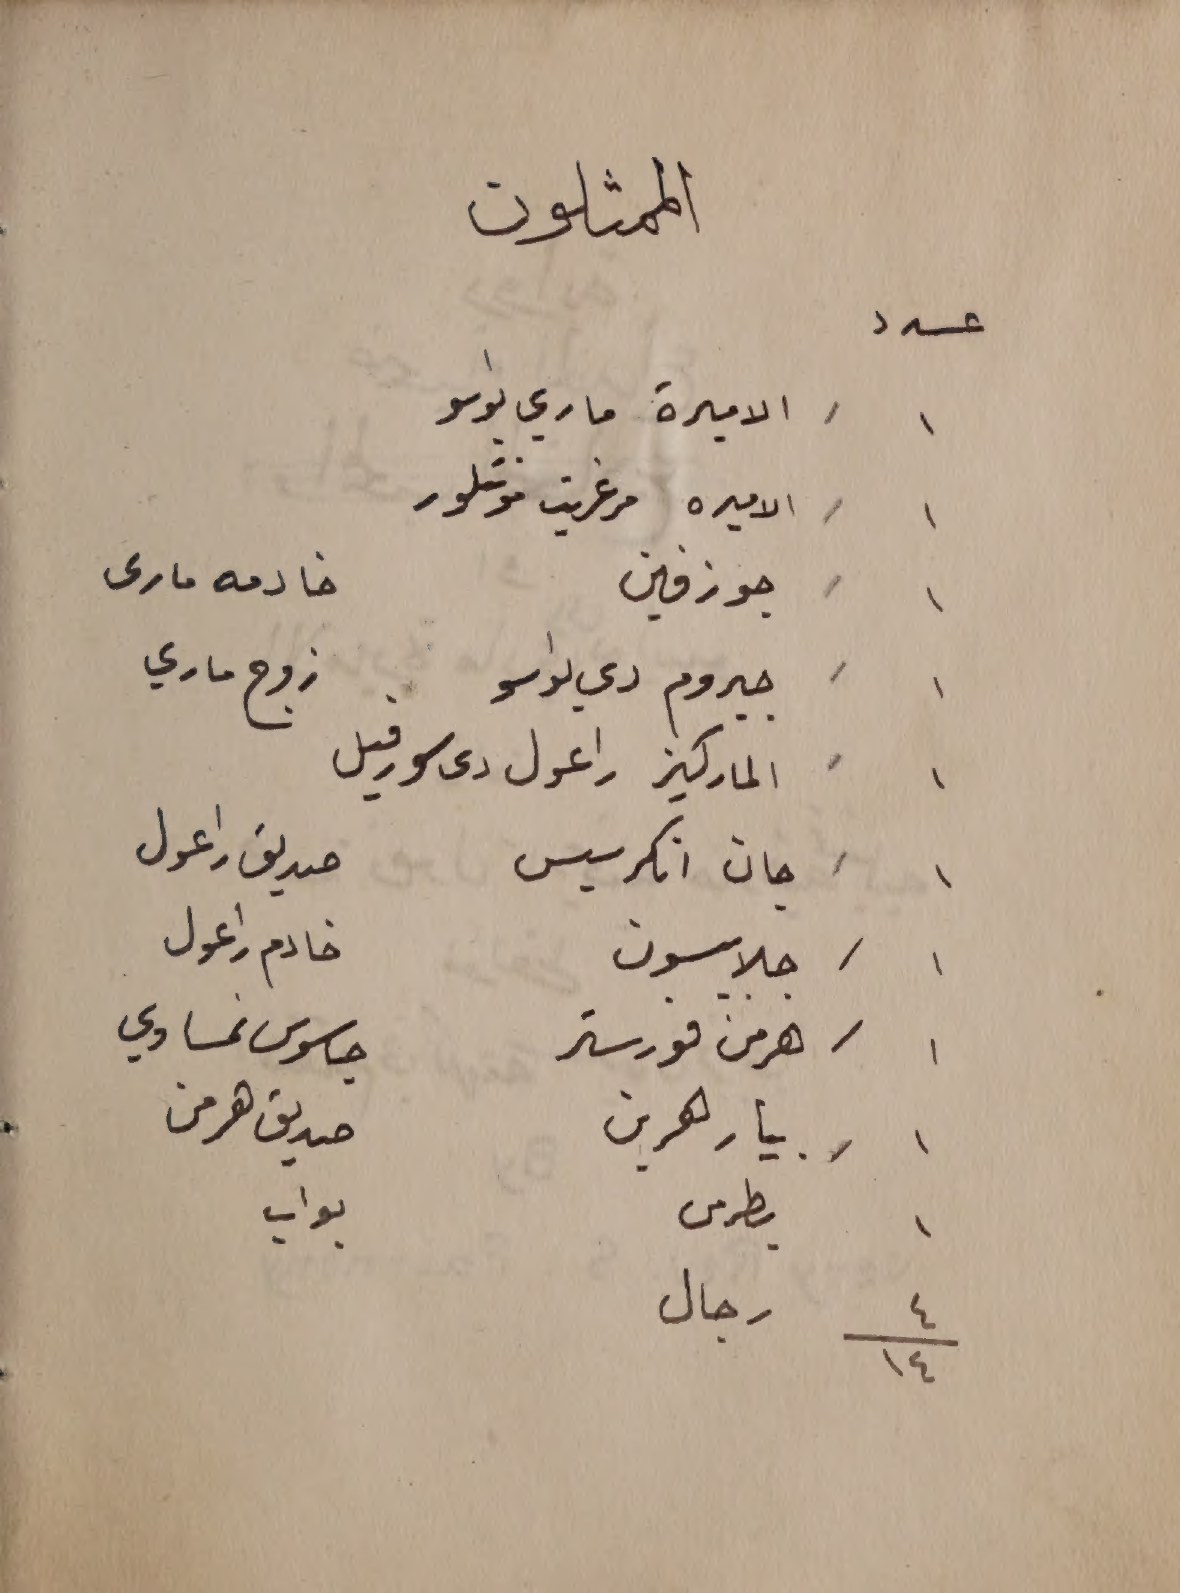 الممثلون
عدد
١ / الاميرة ماري بواسو
١ / الاميره مرغريت مونتلور
١ / جوزفين خادمه مارى
١ / جيروم دي بواسو زوج ماري
١ / الماركيز راعول دى سورفيل
١ / جان انكرسيس صديق راعول
١ / جلابيسون خادم راعول
١ / هرمن فورستر جاسوس نمساوي
١ / بيار هرين صديق هرمن
١ بطرس بواب
٤ رجال
١٤